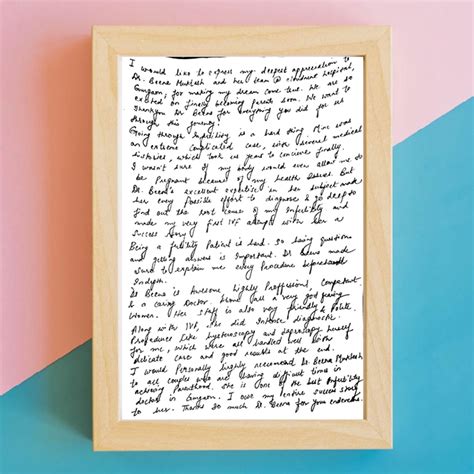 I would like to express my deepest appreciation to
Dr. Beena Muktesh and her team @ Hospital,
Gurgaon, for making my dream come true. We are so
excited on finally becoming parents soon. We want to
thankyou Dr Beena for everything you did for us
through this journey!
Going through Infertility is a hard thing. Mine was
an extreme complicated case, with several medical
histories, which took us years to conceive finally.
I wasn't sure if my body would even allow me to
be Pregnant because of my health issues. But
Dr. Beena's excellent expertise in her subject made
her every possible effort to diagnose & go deep to
find out the root cause of my Infertility and
made my very first IVF attempt with her a
success story
Being a fertility Patient is hard. So being questions
and getting answers is important. Dr Beena made
sure to explain me every Procedure
Indepth.
Dr Beena is Awesome, highly Proffessional, Competant
& a caring Doctor. all a very good
Women. Her staff is also very friendly & Polite.
Along with IVF, she did Intense diagnostic
Procedures like hysteroscopy and laproscopy herself
for me, which were all handled well with
delicate care and good results at the end.
I would Personally highly recommend Dr Beena Muktesh
to all couples who are having difficult time in
achieving Parenthood. She is one of the best Infertility
doctors in Gurgaon. I owe my entire success story
to her. Thanks so much Dr. Beena for your